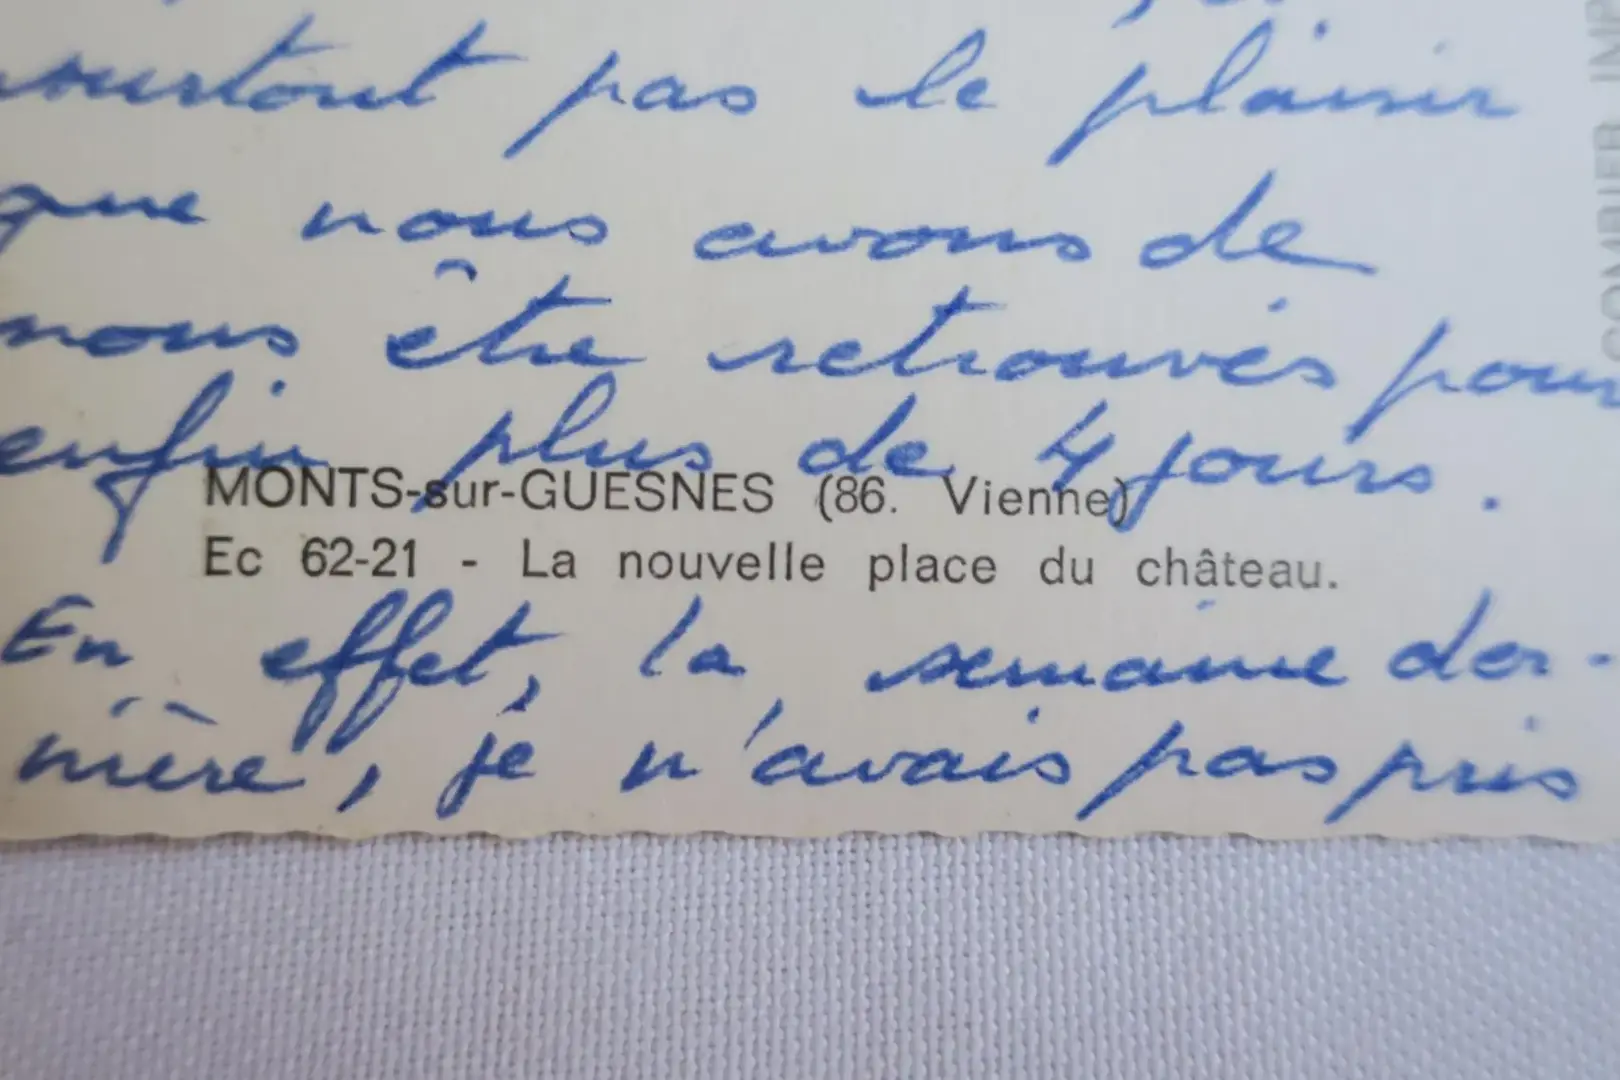 surtout pas le plaisir
que nous avons de
nous être retrouvés pour
enfin plus de 4 jours.
MONTS-sur-GUESNES (86. Vienne)
Ec 62-21 - La nouvelle place du château.
En effet, la semaine der-
nière, je n'avais pas pris
COMBIER IMP